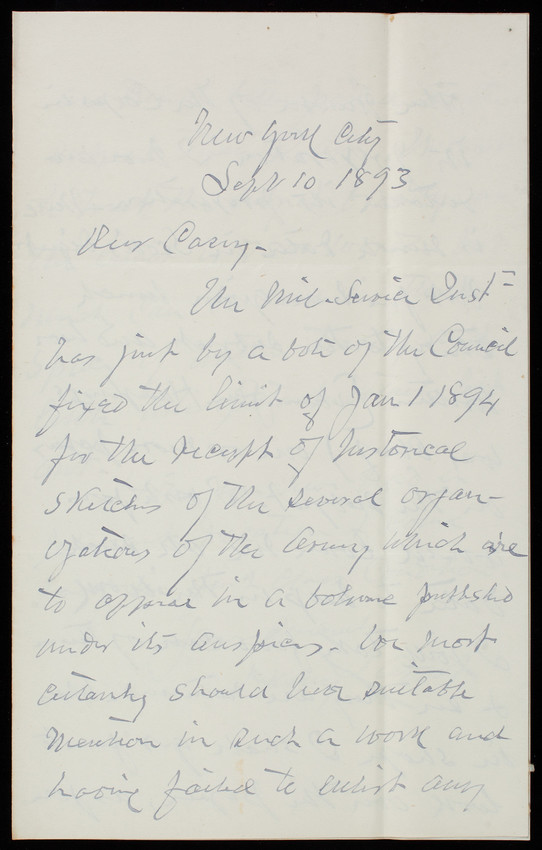 New York City
Sept 10 1893
Dear Casey-
The Mil. Service Inst=
has just by a vote of the Council
fixed the limit of Jan 1 1894
for the receipt of historical
sketches of the several organ-
izations of the Army which are
to appear in a volume published
under its auspices. We most
certainly should have suitable
mention in such a work and
having failed to enlist any